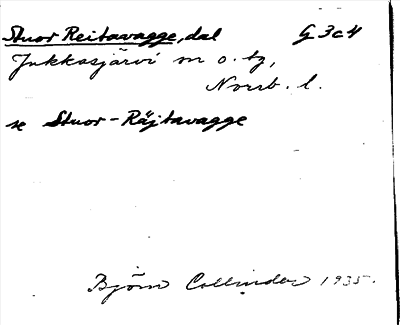 Stuor Reitavagge, dal G 3c4
Jukkasjärvi sn o. tg,
Norrb. l.
se Stuor-Räjtavagge
Björn Collinder 1935.